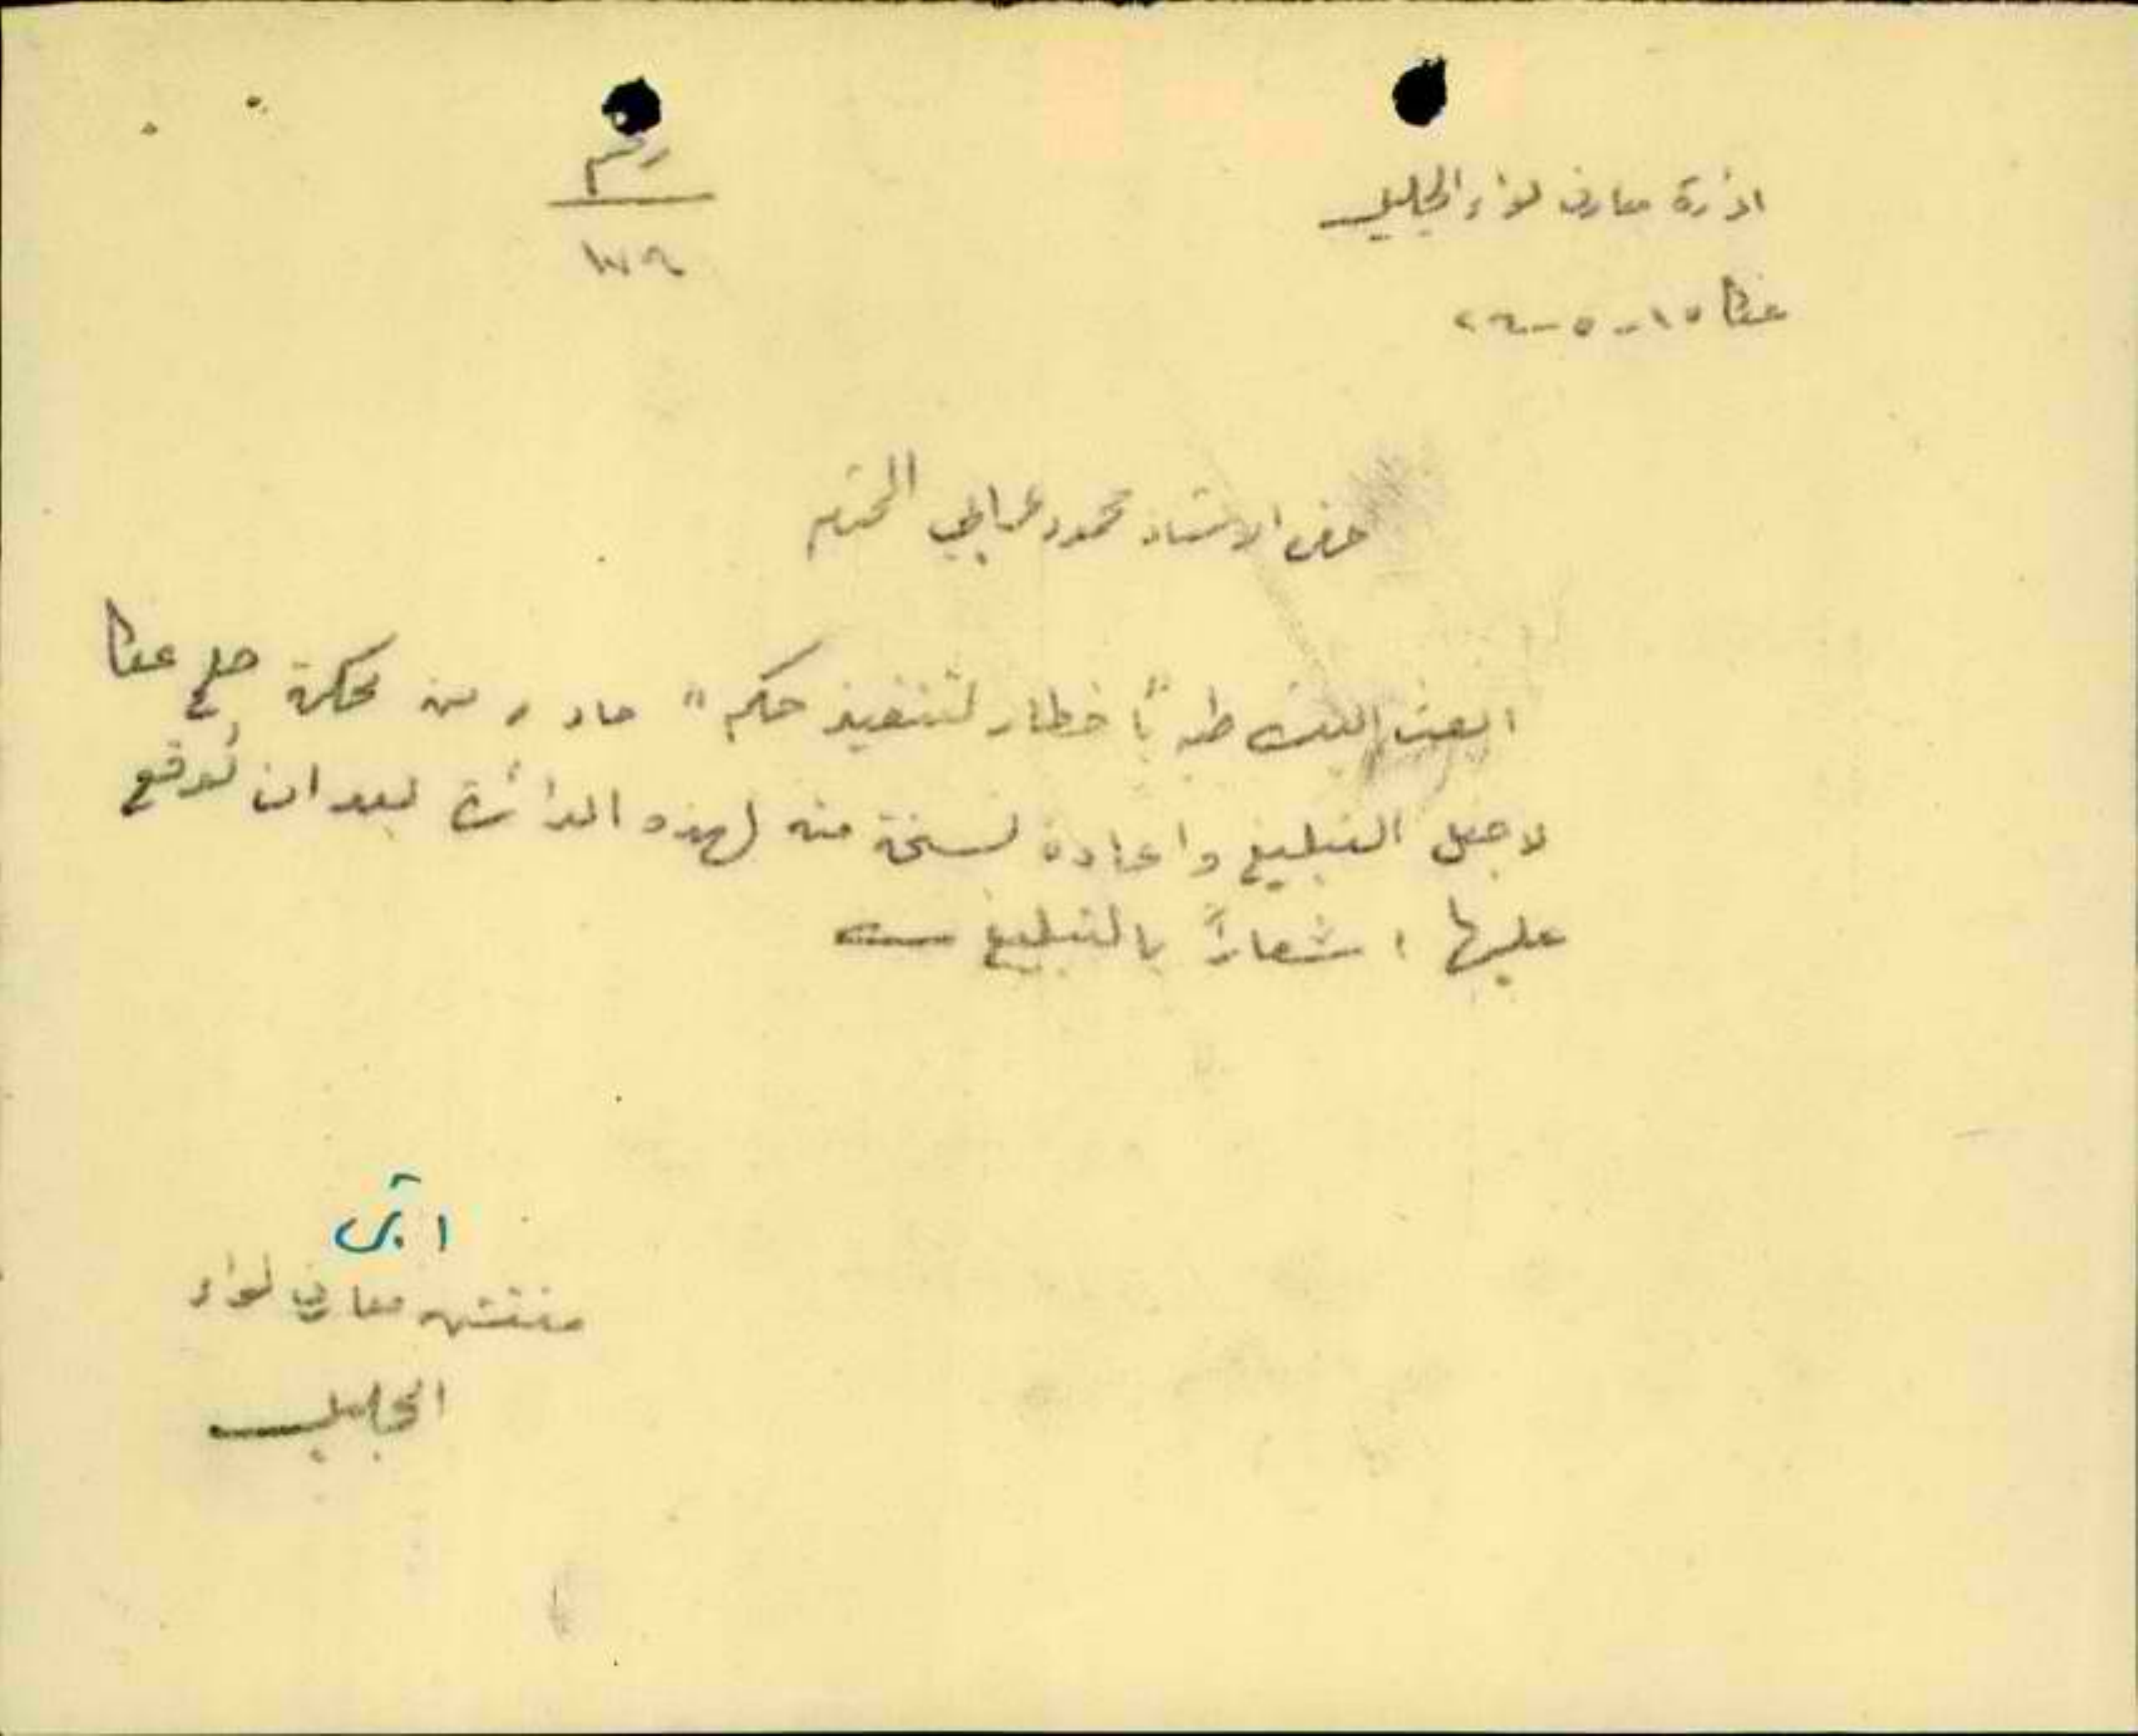 ادارة معارف لواء الجليل
رقم
١٧٩
عكا ١٥-٥-٢٩
حضرة الاستاذ محمود المحترم
ابعث اليك طيه "اخطار لتنفيذ حكم" صادر من محكمة صلح عكا
لاجل التبليغ واعادة نسخة منه لهذه الدائرة بعد ان توقع
عليها اشعاراً بالتبليغ
مفتش معارف لواء
الجليل